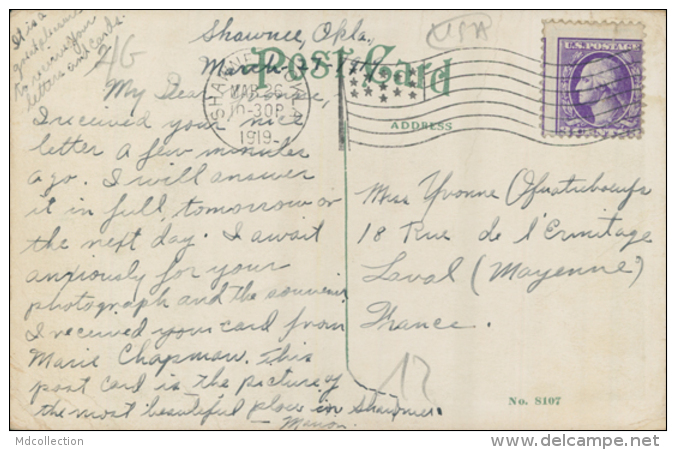 It is a
great pleasure
to receive your
letters and cards.
4G
Shawnee, Okla.,
March 27, 1919
USA
Post Card
ADDRESS
U.S. POSTAGE
SHAWNEE OKLA.
MAR 26
10-30P
1919
My Dear Yvonne,
I received your nice
letter a few minutes
ago. I will answer
it in full, tomorrow or
the next day. I await
anxiously for your
photograph and the souvenir
I received your card from
Marie Chapman. This
post card is the picture of
the most beautiful place in Shawnee.
Marion.
Miss Yvonne
18 Rue de l'Ermitage
Laval (Mayenne)
France.
12
No. 8107
Mdcollection
delcampe.net